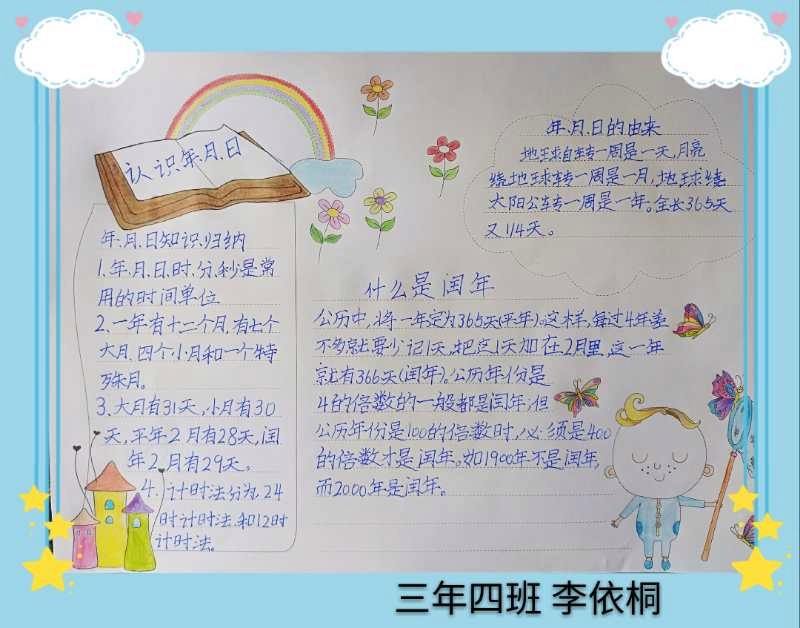 认识年、月、日
年、月、日的由来
地球自转一周是一天,月亮
绕地球转一周是一月,地球绕
太阳公转一周是一年。全长365天
又1/4天。
年、月、日知识归纳
1、年、月、日、时、分、秒是常
用的时间单位
2、一年有十二个月,有七个
大月,四个小月和一个特
殊月。
3、大月有31天,小月有30
天,平年2月有28天,闰
年2月有29天。
4、计时法分为24
时计时法和12时
计时法。
什么是闰年
公历中,将一年定为365天(平年)。这样,每过4年差
不多就要少记1天,把这1天加在2月里,这一年
就有366天(闰年)。公历年份是
4的倍数的一般都是闰年,但
公历年份是100的倍数时,必须是400
的倍数才是闰年。如1900年不是闰年,
而2000年是闰年。
三年四班 李依桐